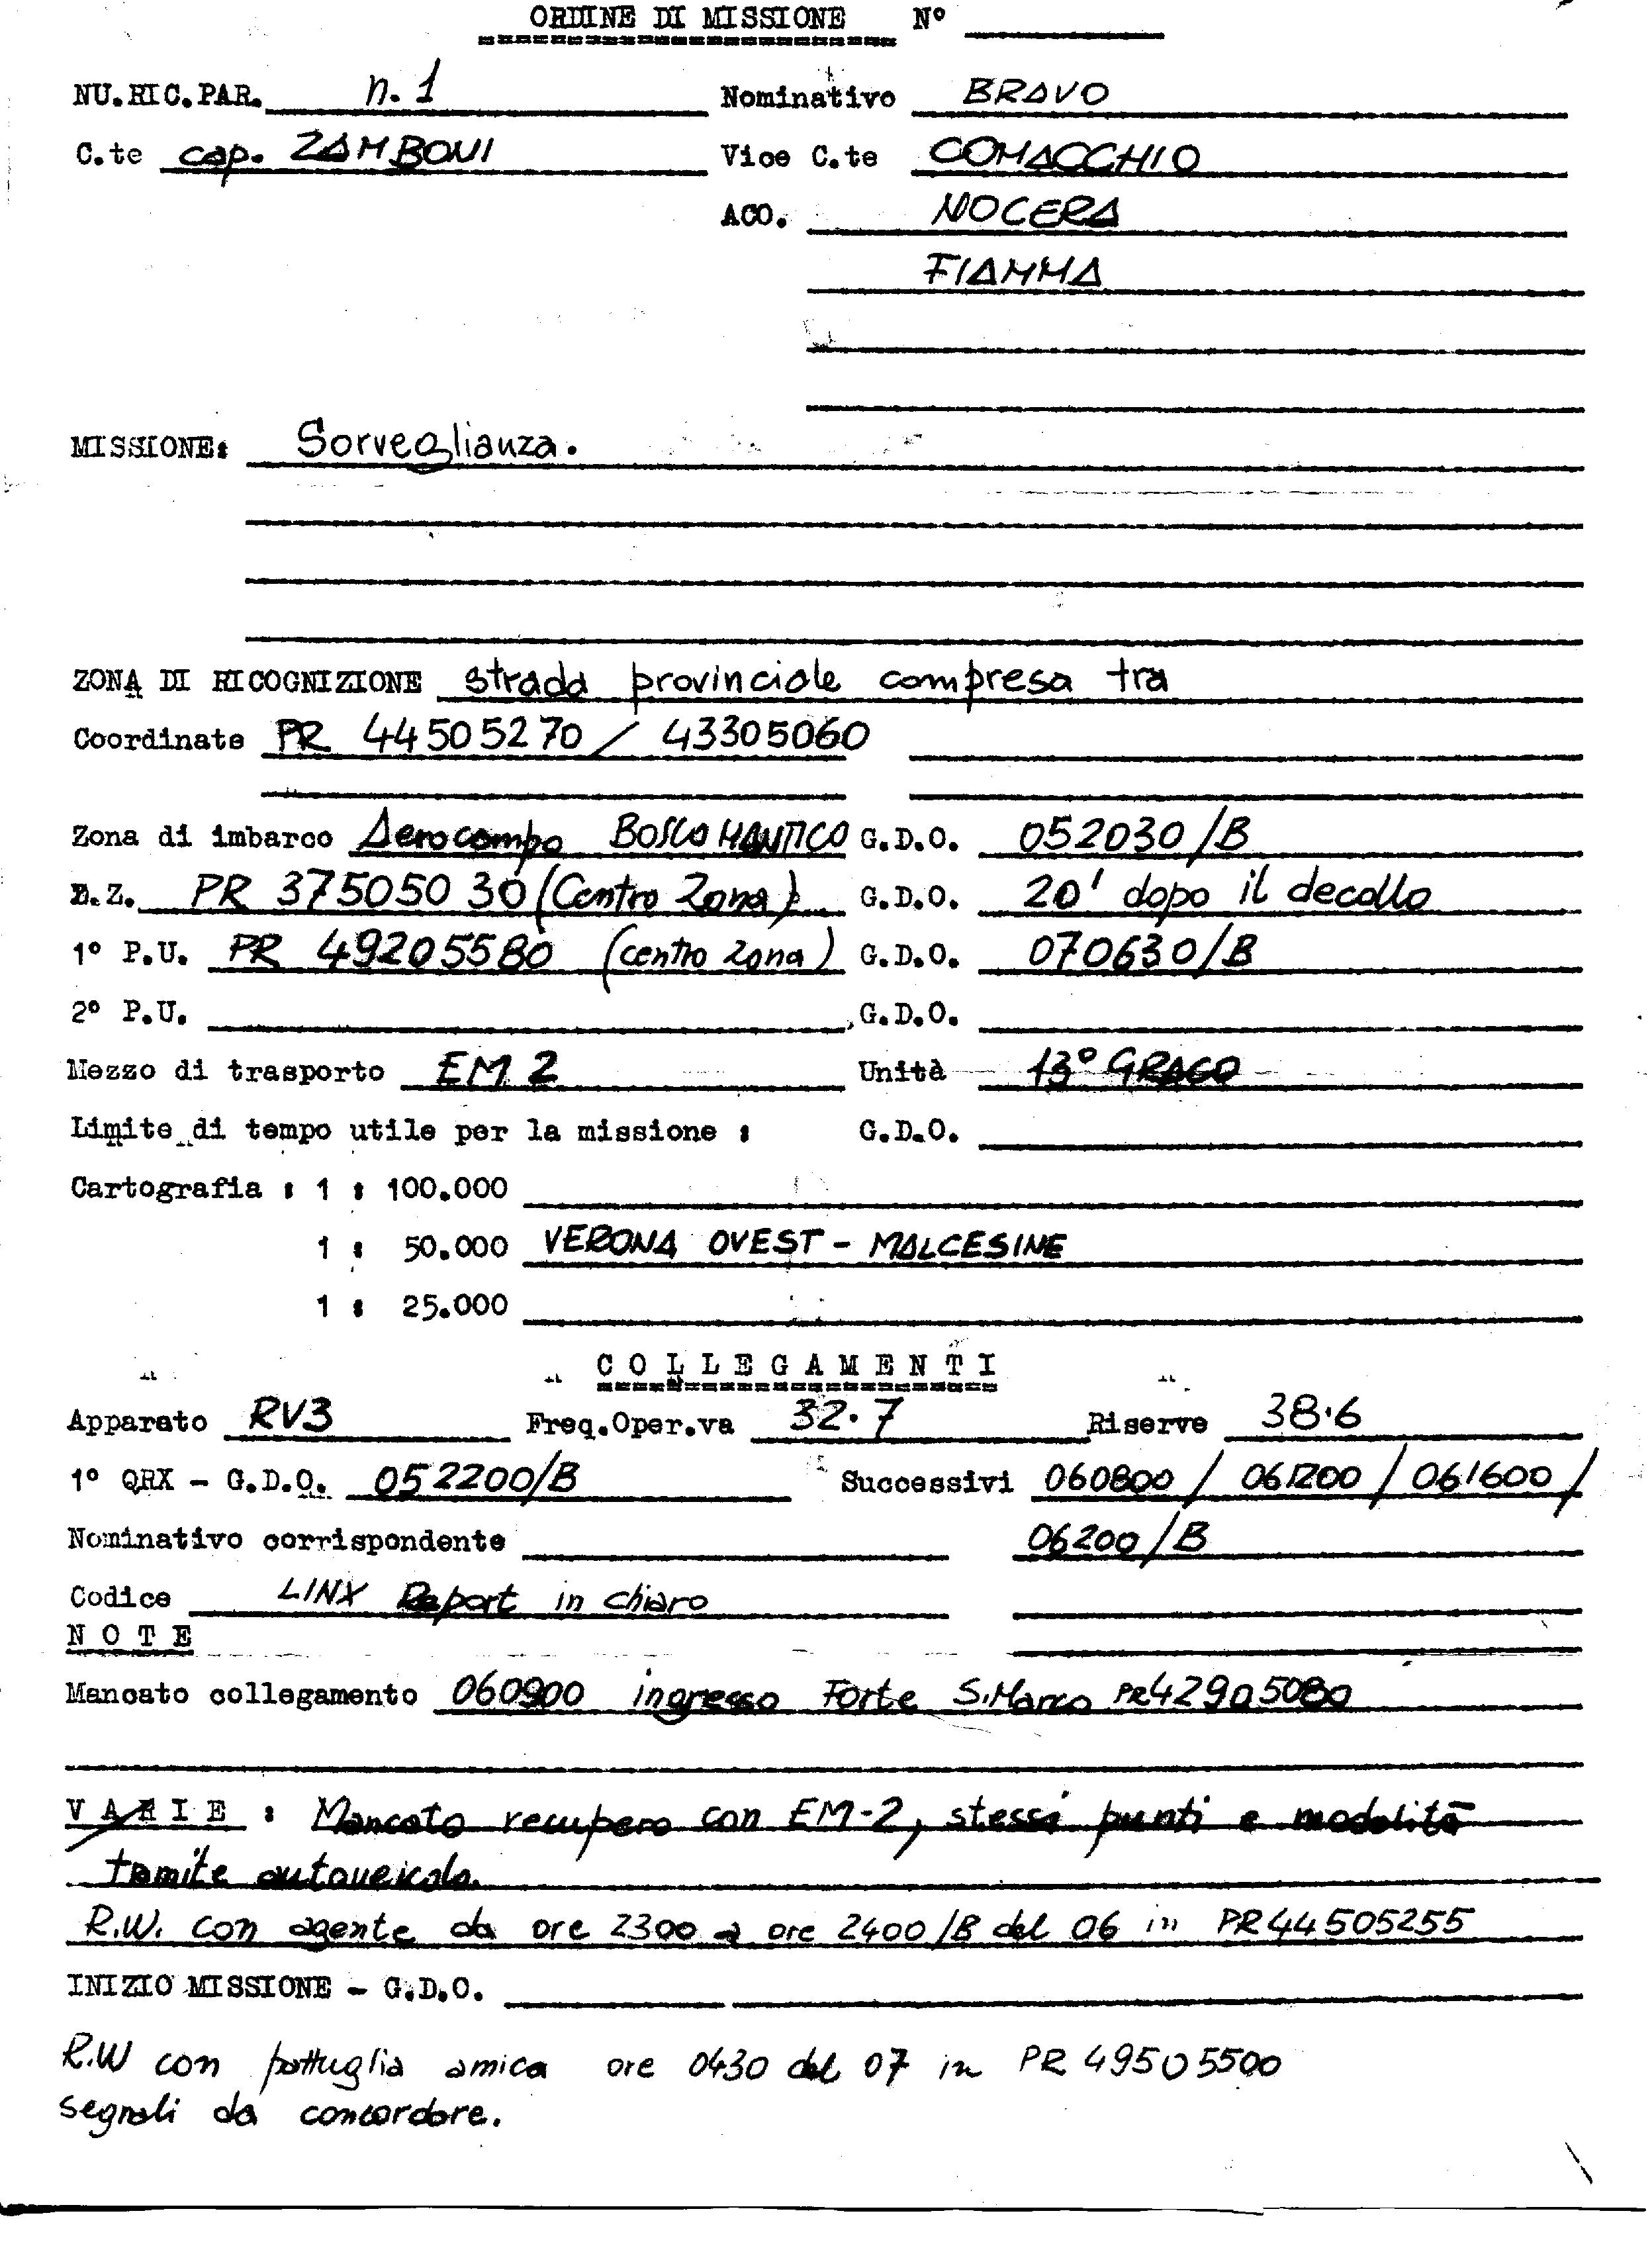 ORDINE DI MISSIONE N°
NU.RIC.PAR. n. 1 Nominativo BRAVO
C.te cap. ZAMBONI Vice C.te COMACCHIO
ACO. NOCERA
FIAMMA
MISSIONE: Sorveglianza.
ZONA DI RICOGNIZIONE strada provinciale compresa tra
Coordinate PR 44505270 / 43305060
Zona di imbarco Aerocampo BOSCO MANTICO G.D.O. 052030/B
D.Z. PR 37505030 (Centro Zona) G.D.O. 20' dopo il decollo
1° P.U. PR 49205580 (centro zona) G.D.O. 070630/B
2° P.U. G.D.O.
Mezzo di trasporto EM 2 Unità 13° GRACO
Limite di tempo utile per la missione : G.D.O.
Cartografia : 1 : 100.000
1 : 50.000 VERONA OVEST - MALCESINE
1 : 25.000
COLLEGAMENTI
Apparato RV3 Freq.Oper.va 32.7 Riserve 38.6
1° QRX - G.D.O. 052200/B Successivi 060800 / 061200 / 061600 /
Nominativo corrispondente 06200/B
Codice LINX Report in chiaro
NOTE
Mancato collegamento 060900 ingresso Forte S.Marco PR42905080
VARIE : Mancato recupero con EM-2, stessi punti e modalità
tramite autoveicolo.
R.W. con agente da ore 2300 a ore 2400/B del 06 in PR44505255
INIZIO MISSIONE - G.D.O.
R.W con pattuglia amica ore 0430 del 07 in PR 49505500
segnali da concordare.